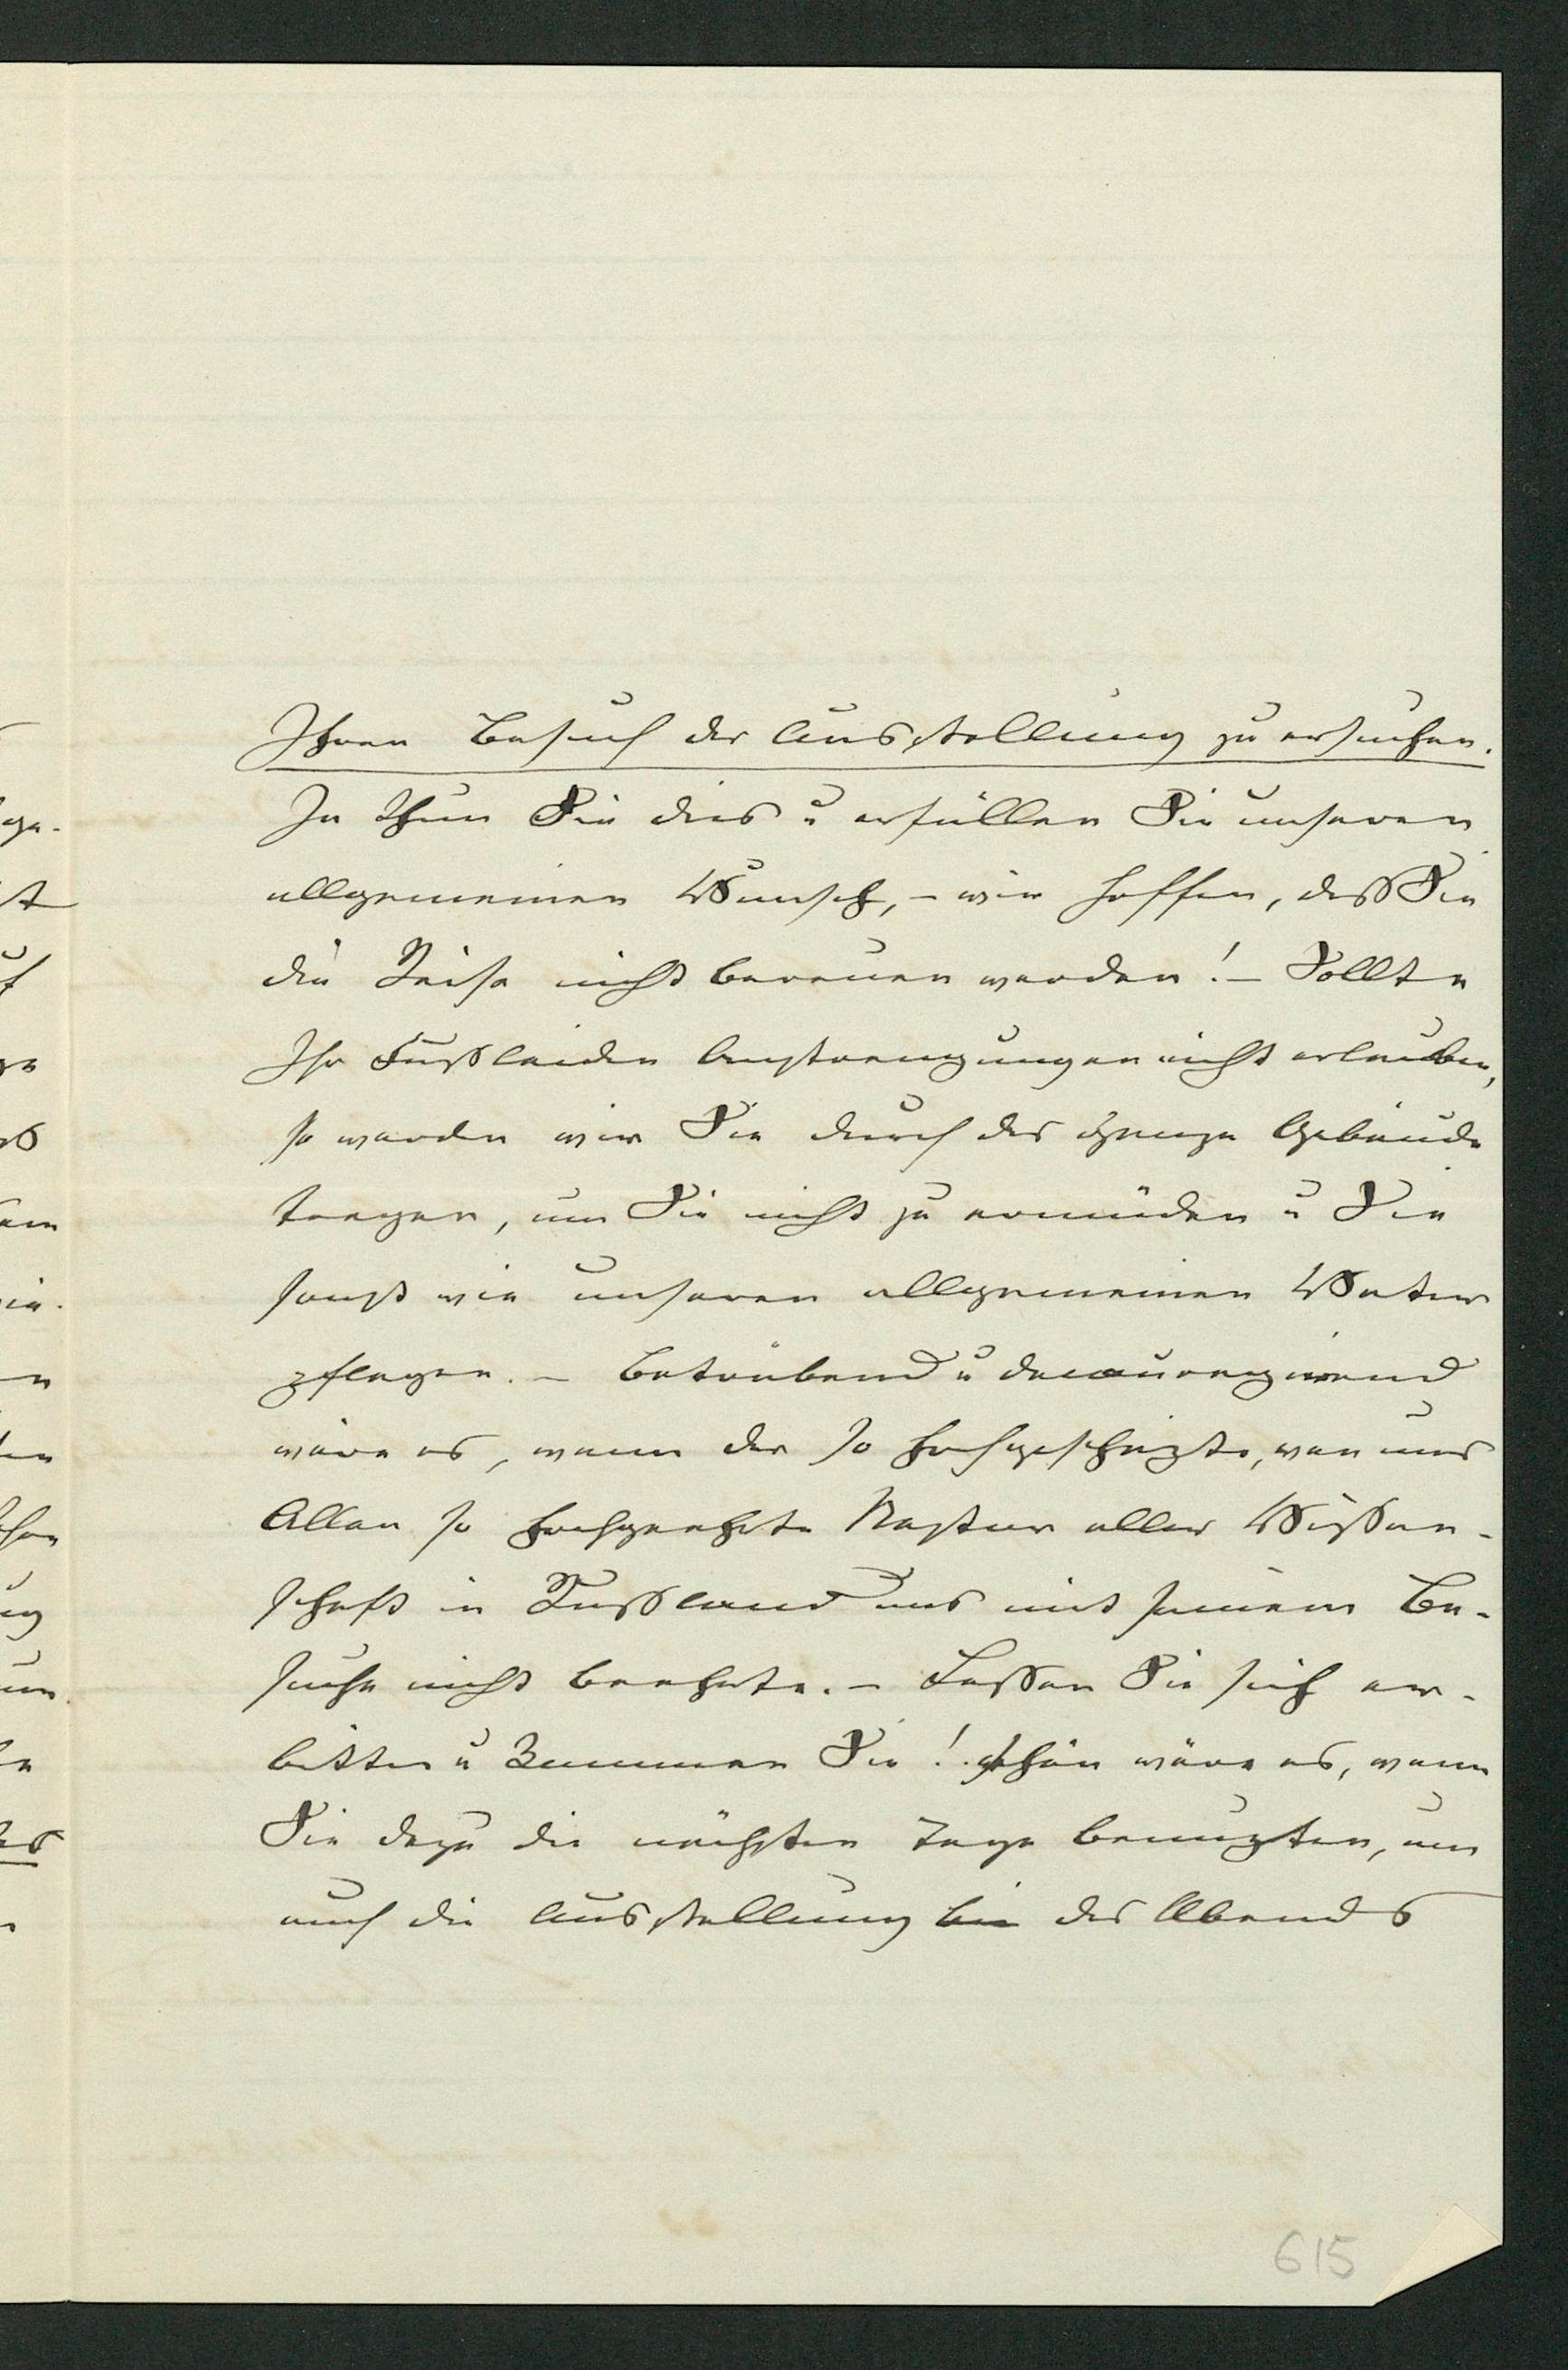 Ihren Besuch der Ausstellung zu ersuchen.
Ja thun Sie dies u erfüllen Sie unseren
allgemeinen Wunsch, – wir hoffen, daß Sie
die Reise nicht bereuen werden! – Sollte
Ihr Fußleiden Anstrengungen nicht erlauben,
so werden wir Sie durch das ganze Gebäude
tragen, um Sie nicht zu ermüden u Sie
sonst wie unseren allgemeinen Vater
pflegen. – Betrübend u decouragirend
wäre es, wenn der so hochgeschäzte, von uns
Allen so hochgeehrte Nestor aller Wissen-
schaft in Russland uns mit seinem Be-
suche nicht beehrte. – Lassen Sie sich er-
bitten u kommen Sie! schön wäre es, wenn
Sie dazu die nächsten Tage benuzten, um
auch die Ausstellung bei des Abends
615